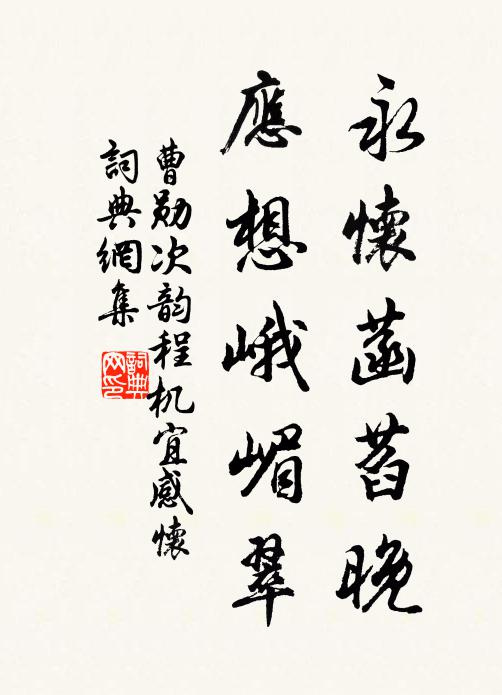 永懷菡萏晚
應想峨嵋翠
曹勛次韵程机宜感懷
詞典網集
詞典网印